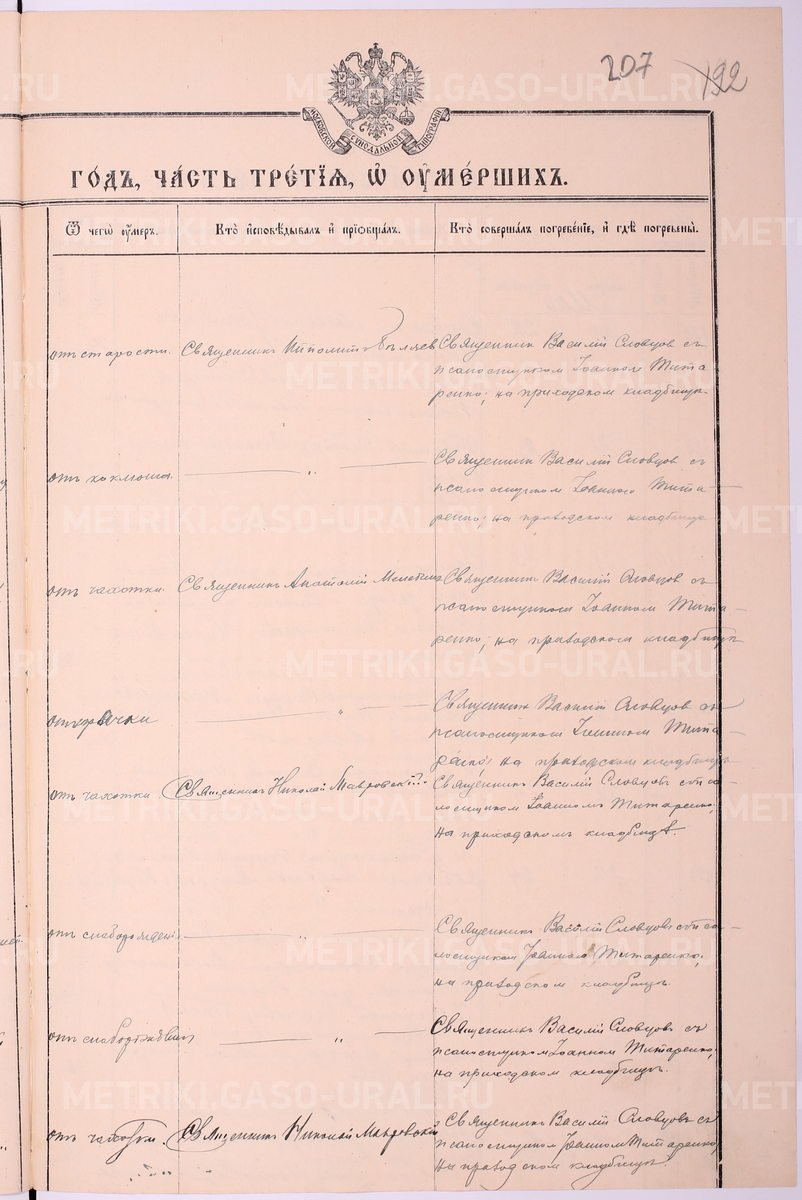 207 192
МОСКОВСКОЙ СѴНОДАЛЬНОЙ ТИПОГРАФІИ
ГО́ДЪ, ЧА́СТЬ ТРЕ́ТІЯ, Ѡ҆ ОУ҆МЕ́РШИХЪ.
Ѿ чегѡ̀ оу҆́меръ. Кто̀ и҆сповѣ́дывалъ и҆ прїѡбща́лъ. Кто̀ соверша́лъ погребе́нїе, и҆ гдѣ̀ погребены̀.
отъ старости. Священникъ Ипполитъ Бѣляевъ Священник Василій Словцов съ
псаломщиком Іоанном Тита
ренко; на приходском кладбищѣ.
отъ коклюша. — „ — Священник Василій Словцов съ
псаломщиком Іоанном Тита—
ренко; на приходском кладбище
отъ чахотки. Священникъ Анатолій Священник Василій Словцов съ
псаломщиком Іоанном Тита—
ренко; на приходском кладбищѣ
отъ горячки — „ — Священник Василій Словцов съ
псаломщиком Іоанном Тита—
ренко; на приходском кладбищѣ
отъ чахотки Священникъ Николай Мавровскій. Священникъ Василій Словцовъ съ пса—
ломщиком Іоанномъ Титаренко,
на приходскомъ кладбищѣ.
отъ слаборожденія — „ — Священникъ Василій Словцовъ съ пса—
ломщиком Іоанном Титаренко,
на приходском кладбищѣ.
отъ — „ — Священникъ Василій Словцовъ съ
псаломщиком Іоанном Титаренко,
на приходском кладбищѣ.
отъ чахотки. Священникъ Николай Мавровскій Священникъ Василій Словцовъ съ
псаломщиком Іоанном Титаренко,
на приходском кладбищѣ.
METRIKI.GASO-URAL.RU